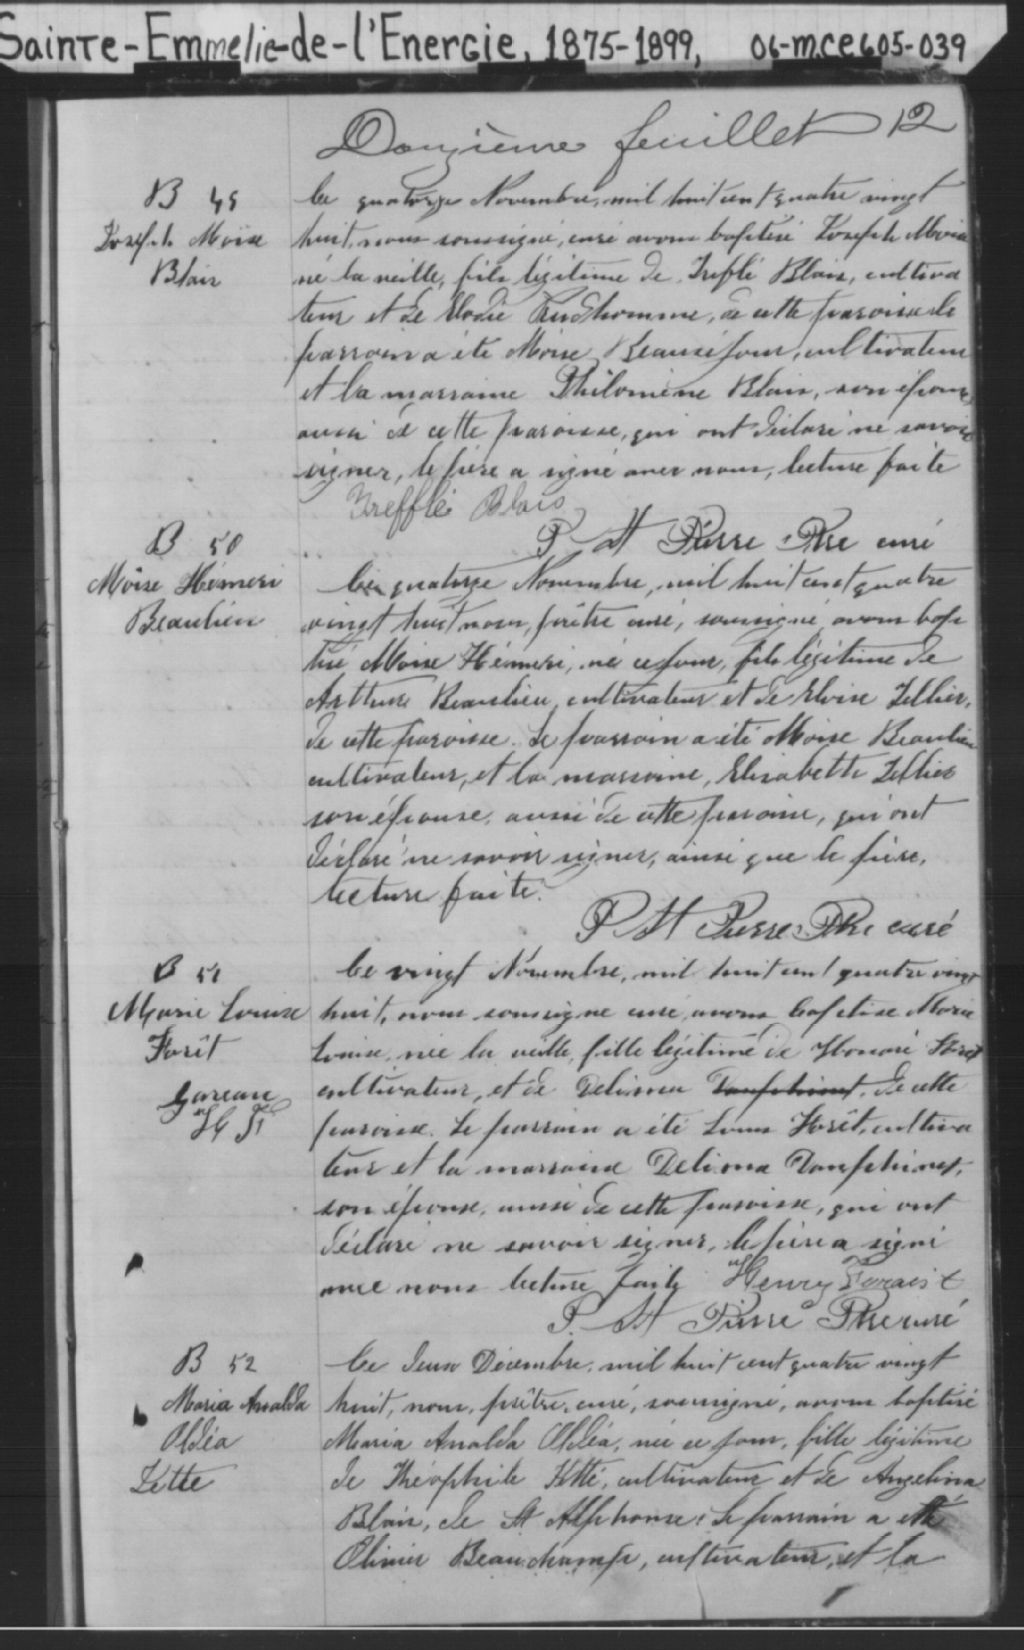 Sainte-Emmelie-de-l'Energie, 1875-1899, 06-M.CE605-039
Douzième feuillet 12
B 49
Joseph Moise
Blais
Ce quatorze Novembre, mil huit cent quatre vingt
huit, nous soussigné, curé avons baptisé Joseph Moise
né la veille, fils légitime de Trefflé Blais, cultiva
teur et de Elodie Prudhomme, de cette paroisse. Le
parrain a été Moise Beauséjour, cultivateur
et la marraine Philomène Blais, son épouse,
aussi de cette paroisse, qui ont déclaré ne savoir
signer, le père a signé avec nous, lecture faite
Trefflé Blais
P. St Pierre Ptre curé
B 50
Moïse Hémeri
Beaulieu
Ce quatorze Novembre, mil huit cent quatre
vingt huit nous, prêtre curé, soussigné, avons bap
tisé Moise Hémeri, né ce jour, fils légitime de
Arthur Beaulieu, cultivateur et de Eloise Tellier,
de cette paroisse. Le parrain a été Moise Beaulieu
cultivateur, et la marraine, Elisabette Tellier
son épouse, aussi de cette paroisse, qui ont
déclaré ne savoir signer, ainsi que le père,
lecture faite.
P. St Pierre Ptre curé
B 51
Marie Louise
Forêt
Gareau
Ce vingt Novembre, mil huit cent quatre vingt
huit, nous soussigné curé, avons baptisé Marie
Louise, née la veille, fille légitime de Honoré Foret
cultivateur, et de Delima Dauphinet, de cette
paroisse. Le parrain a été Louis Forêt, cultiva
teur et la marraine Delima Dauphinet,
son épouse, aussi de cette paroisse, qui ont
déclaré ne savoir signer, le père a signé
avec nous lecture faite Henry Foraist
P. St Pierre Ptre curé
B 52
Maria Analda
Oldéa
Tette
Ce deux Décembre, mil huit cent quatre vingt
huit, nous, prêtre, curé, soussigné, avons baptisé
Maria Analda Oldéa, née ce jour, fille légitime
de Théophile Tetté, cultivateur et de Angelina
Blais, de St Alphonse. Le parrain a été
Olivier Beauchamp, cultivateur, et la